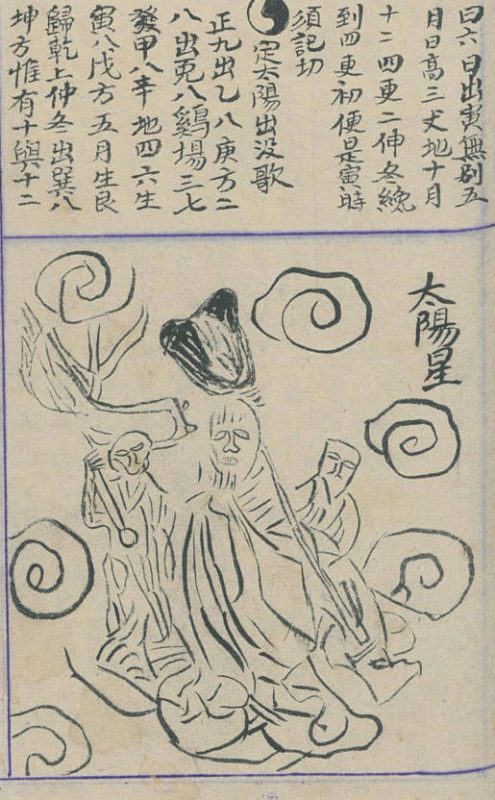 曰六日出寅無别五
月日高三丈地十月
十二四更二仲冬纔
到四更初便是寅時
須記切
定太陽出没歌
正九出乙入庚方二
八出兎入鷄場三七
發甲入辛地四六生
寅入戌方五月生艮
歸乾上仲冬出巽入
坤方惟有十與十二
太陽星